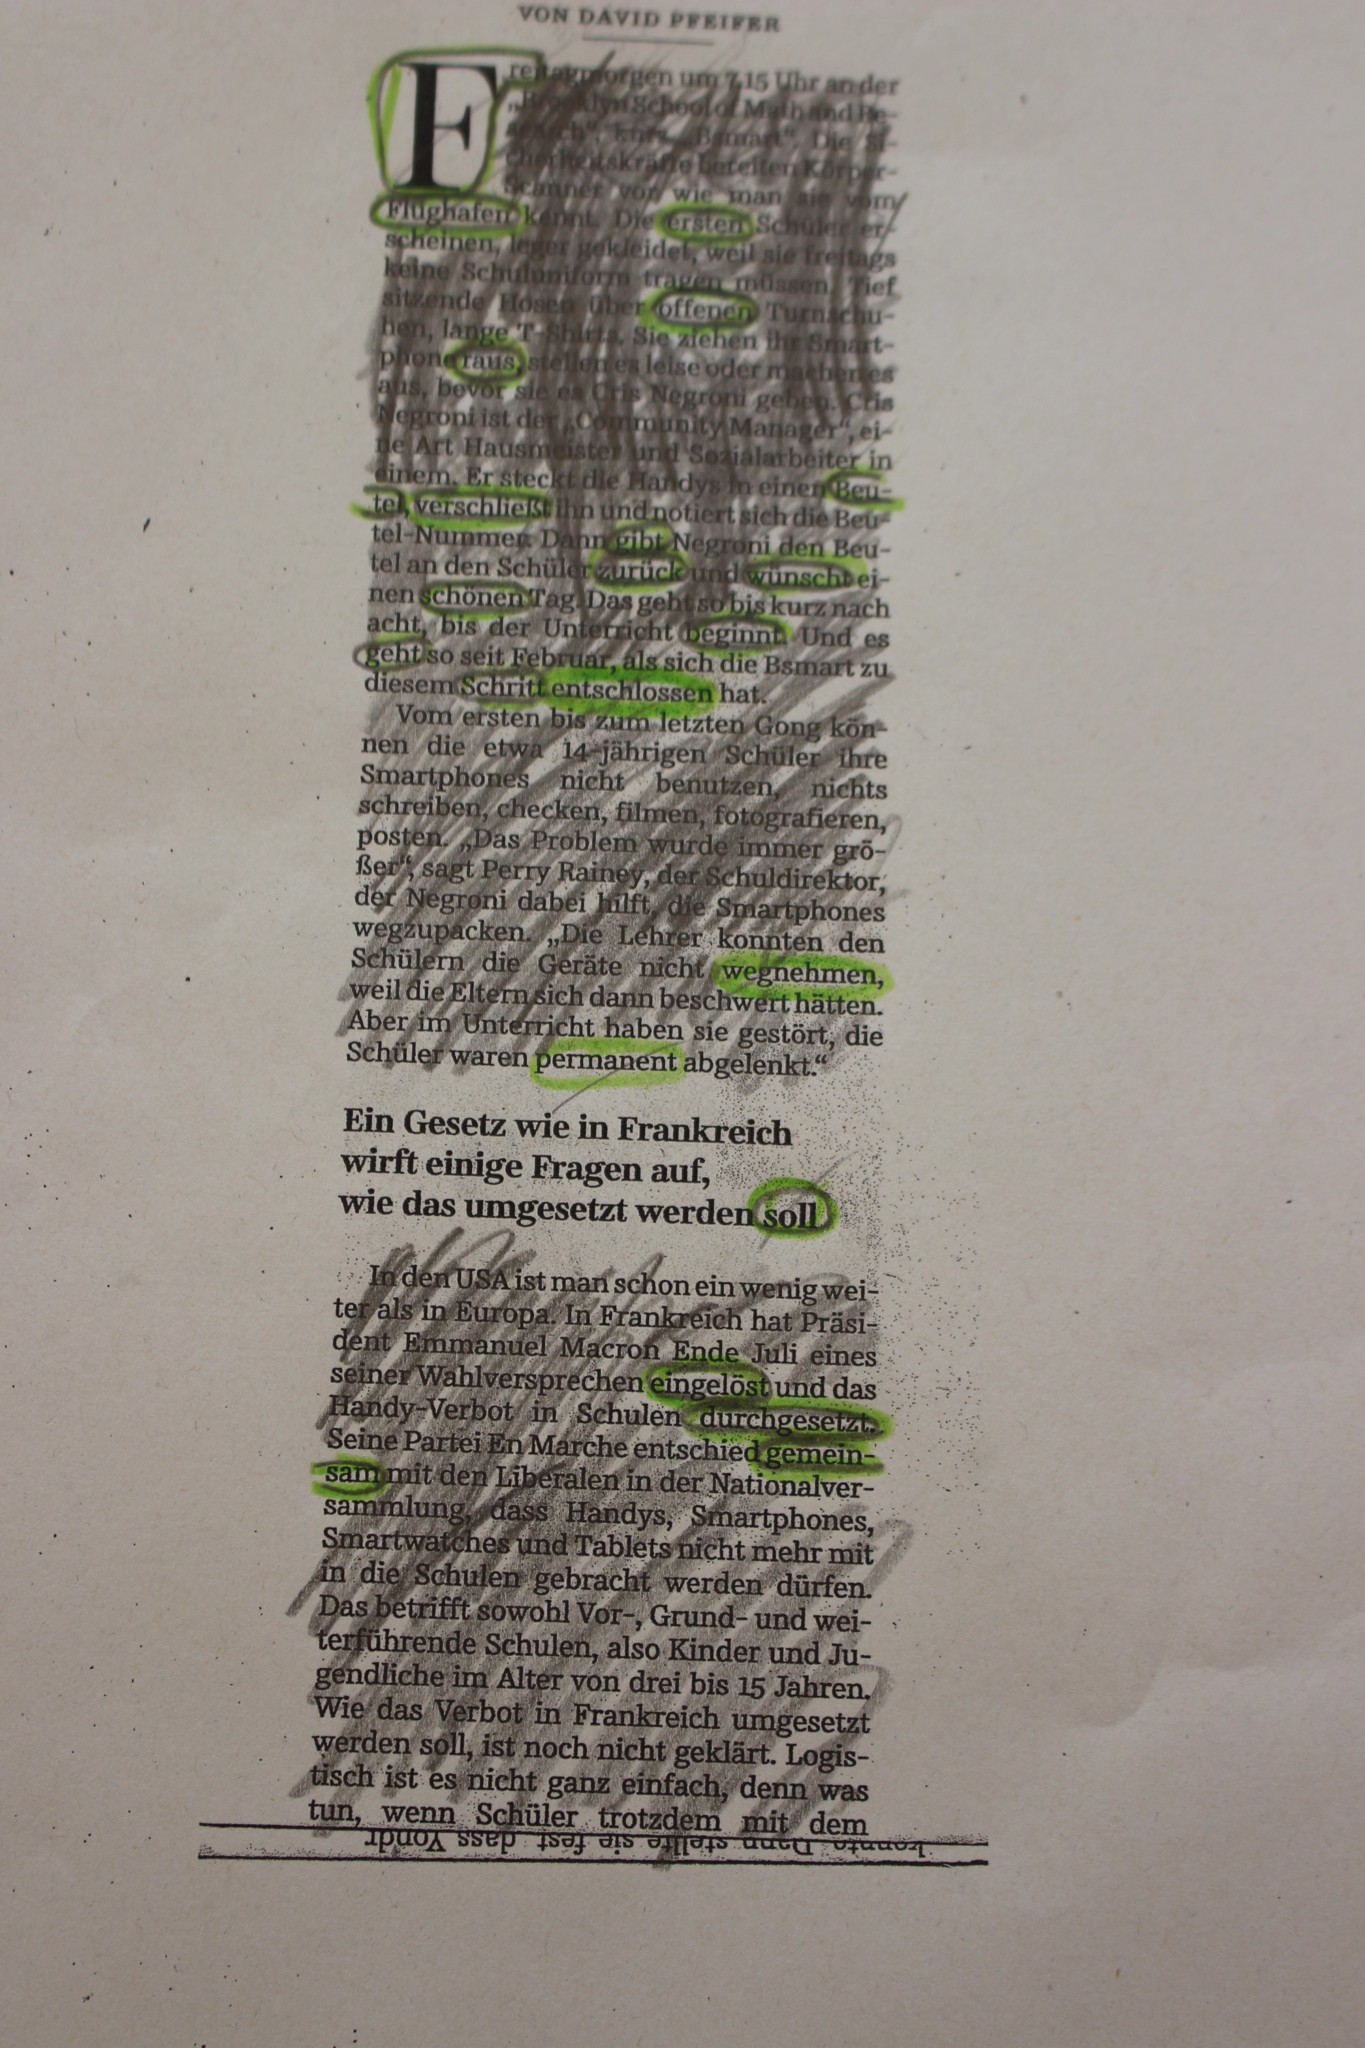 VON DAVID PFEIFER
Freitagmorgen um 7.15 Uhr an der
„Brooklyn School of Math and Re-
search“, kurz „Bsmart“. Die Si-
cherheitskräfte bereiten Körper-
Scanner vor, wie man sie vom
Flughafen kennt. Die ersten Schüler er-
scheinen, leger gekleidet, weil sie freitags
keine Schuluniform tragen müssen. Tief
sitzende Hosen über offenen Turnschu-
hen, lange T-Shirts. Sie ziehen ihr Smart-
phone raus, stellen es leise oder machen es
aus, bevor sie es Cris Negroni geben. Cris
Negroni ist der „Community Manager“, ei-
ne Art Hausmeister und Sozialarbeiter in
einem. Er steckt die Handys in einen Beu-
tel, verschließt ihn und notiert sich die Beu-
tel-Nummer. Dann gibt Negroni den Beu-
tel an den Schüler zurück und wünscht ei-
nen schönen Tag. Das geht so bis kurz nach
acht, bis der Unterricht beginnt. Und es
geht so seit Februar, als sich die Bsmart zu
diesem Schritt entschlossen hat.
Vom ersten bis zum letzten Gong kön-
nen die etwa 14-jährigen Schüler ihre
Smartphones nicht benutzen, nichts
schreiben, checken, filmen, fotografieren,
posten. „Das Problem wurde immer grö-
ßer“, sagt Perry Rainey, der Schuldirektor,
der Negroni dabei hilft, die Smartphones
wegzupacken. „Die Lehrer konnten den
Schülern die Geräte nicht wegnehmen,
weil die Eltern sich dann beschwert hätten.
Aber im Unterricht haben sie gestört, die
Schüler waren permanent abgelenkt.“
Ein Gesetz wie in Frankreich
wirft einige Fragen auf,
wie das umgesetzt werden soll
In den USA ist man schon ein wenig wei-
ter als in Europa. In Frankreich hat Präsi-
dent Emmanuel Macron Ende Juli eines
seiner Wahlversprechen eingelöst und das
Handy-Verbot in Schulen durchgesetzt.
Seine Partei En Marche entschied gemein-
sam mit den Liberalen in der Nationalver-
sammlung, dass Handys, Smartphones,
Smartwatches und Tablets nicht mehr mit
in die Schulen gebracht werden dürfen.
Das betrifft sowohl Vor-, Grund- und wei-
terführende Schulen, also Kinder und Ju-
gendliche im Alter von drei bis 15 Jahren.
Wie das Verbot in Frankreich umgesetzt
werden soll, ist noch nicht geklärt. Logis-
tisch ist es nicht ganz einfach, denn was
tun, wenn Schüler trotzdem mit dem
konnte. Dann stellte sie fest, dass Yondr